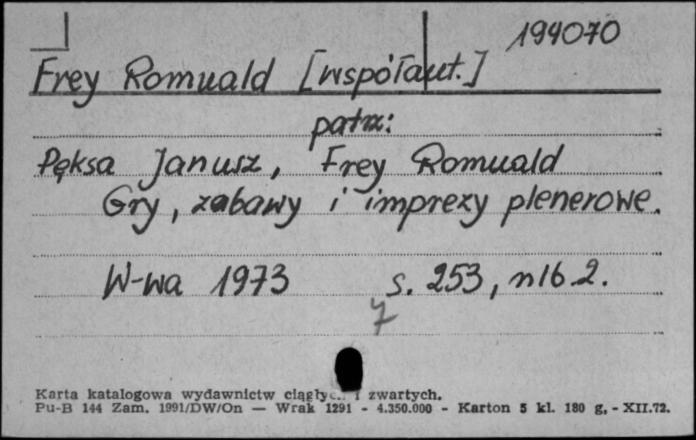 194070
Frey Romuald [współaut.]
patrz:
Pęksa Janusz, Frey Romuald
Gry, zabawy i imprezy plenerowe.
W-wa 1973 s. 253, nlb 2.
7
Karta katalogowa wydawnictw ciągłyc.. i zwartych.
Pu-B 144 Zam. 1991/DW/On — Wrak 1291 - 4.350.000 - Karton 5 kl. 180 g. - XII.72.